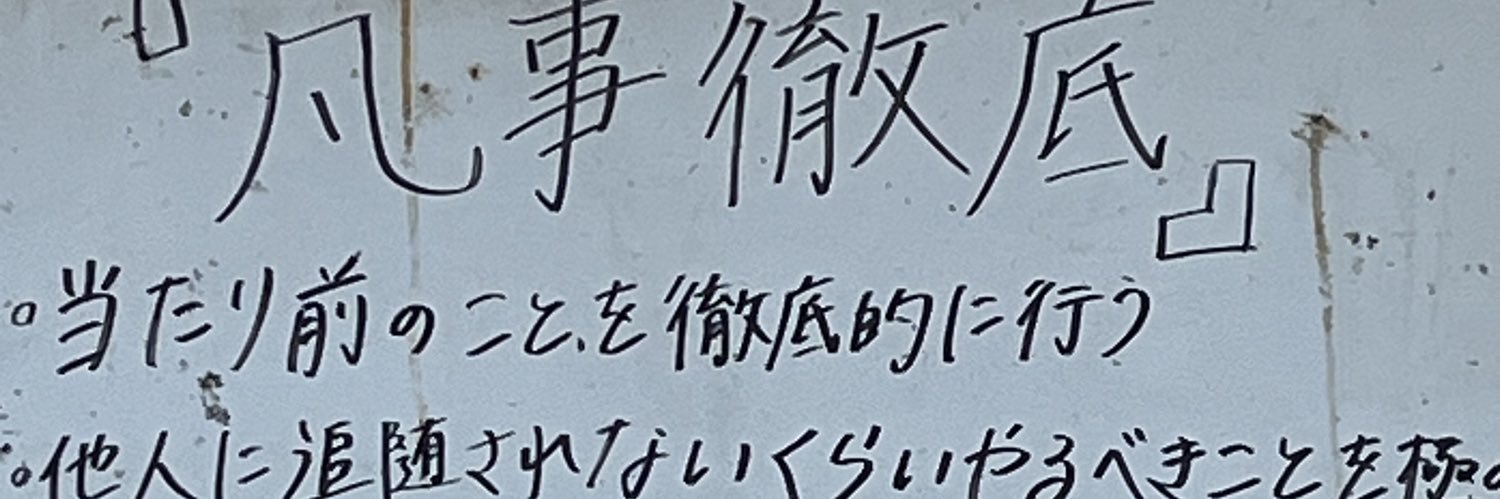 『凡事徹底』
。当たり前のことを徹底的に行う
。他人に追随されないくらいやるべきことを極